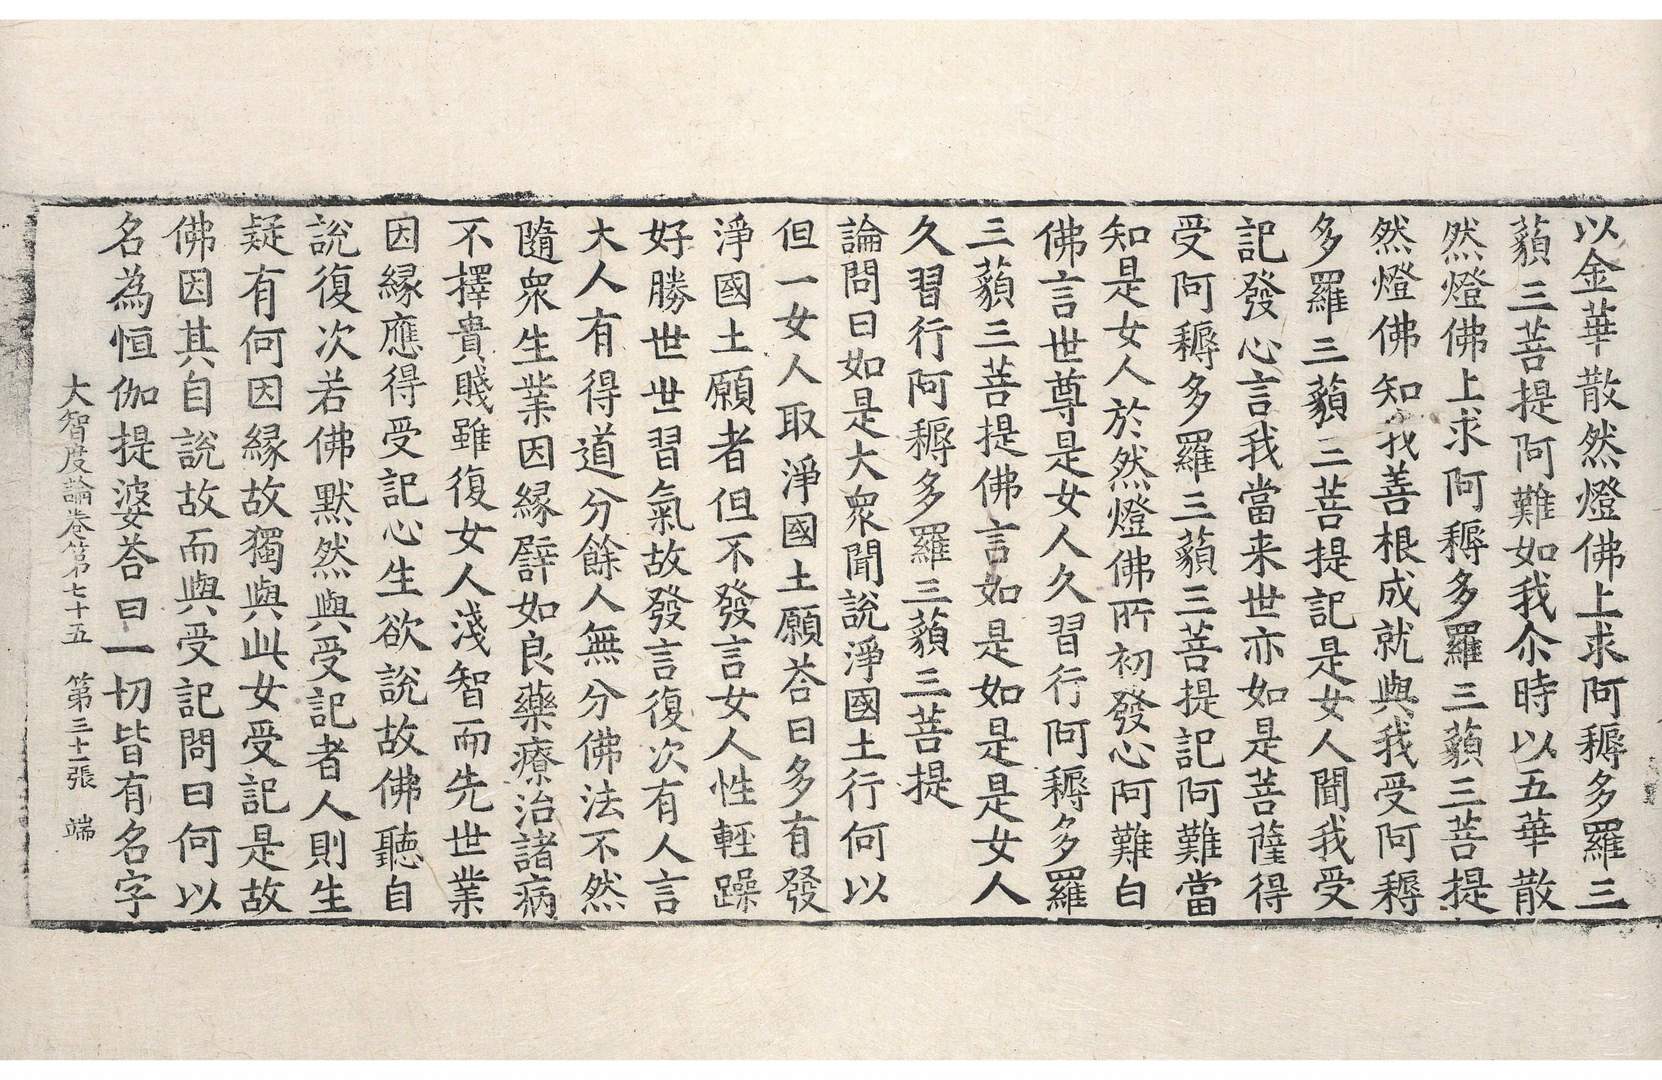 以金華散然燈佛上求阿耨多羅三
藐三菩提阿難如我尒時以五華散
然燈佛上求阿耨多羅三藐三菩提
然燈佛知我善根成就與我受阿耨
多羅三藐三菩提記是女人聞我受
記發心言我當来世亦如是菩薩得
受阿耨多羅三藐三菩提記阿難當
知是女人於然燈佛所初發心阿難白
佛言世尊是女人久習行阿耨多羅
三藐三菩提佛言如是如是是女人
久習行阿耨多羅三藐三菩提
論問曰如是大衆聞說淨國土行何以
但一女人取淨國土願荅曰多有發
淨國土願者但不發言女人性輕躁
好勝世世習氣故發言復次有人言
大人有得道分餘人無分佛法不然
隨衆生業因緣譬如良藥療治諸病
不擇貴賤雖復女人淺智而先世業
因緣應得受記心生欲說故佛聽自
說復次若佛默然與受記者人則生
疑有何因緣故獨與此女受記是故
佛因其自說故而與受記問曰何以
名為恒伽提婆荅曰一切皆有名字
大智度論卷第七十五 第三十二張 端